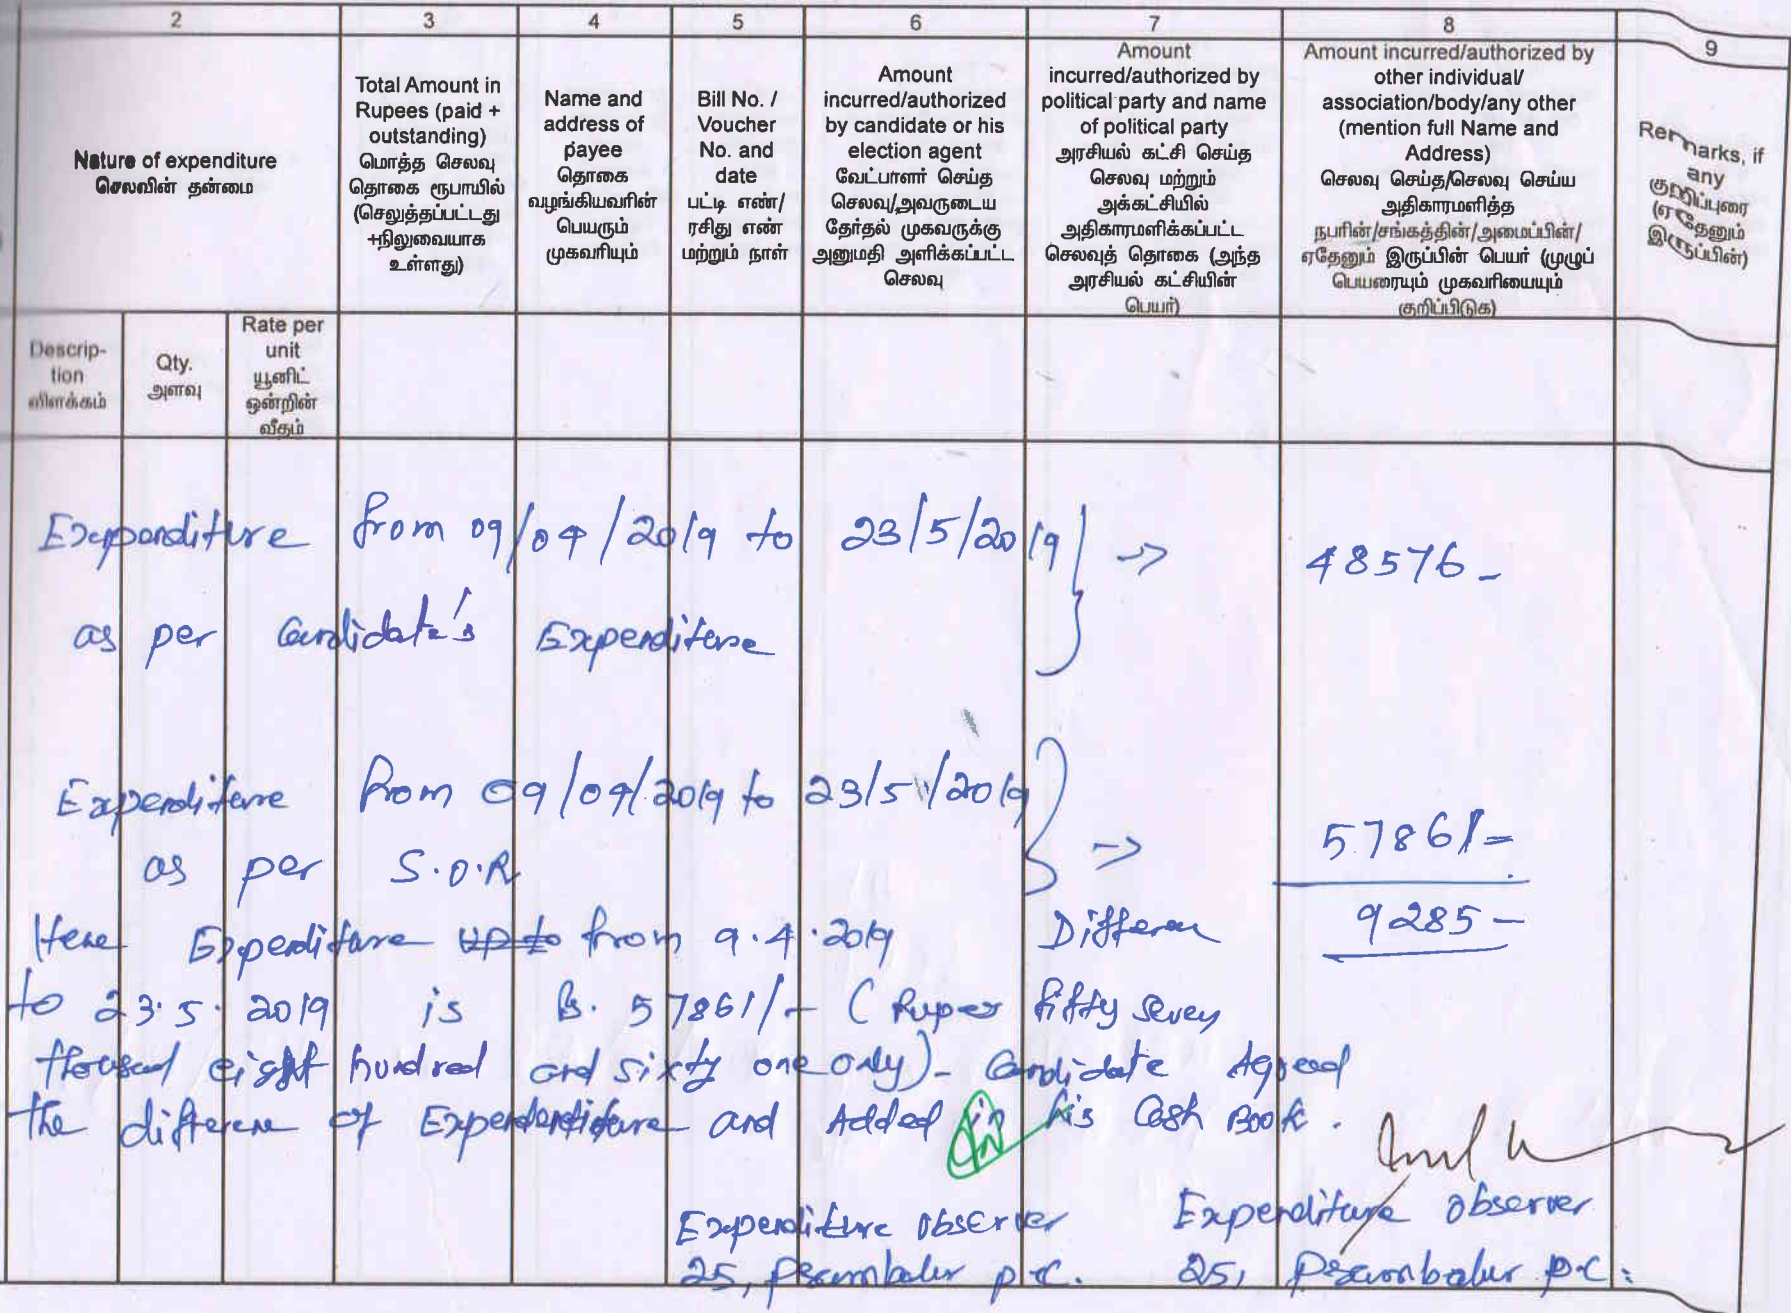 2
3
4
5
6
7
8
9
Nature of expenditure
செலவின் தன்மை
Total Amount in
Rupees (paid +
outstanding)
மொத்த செலவு
தொகை ரூபாயில்
(செலுத்தப்பட்டது
+நிலுவையாக
உள்ளது)
Name and
address of
payee
தொகை
வழங்கியவரின்
பெயரும்
முகவரியும்
Bill No. /
Voucher
No. and
date
பட்டி எண்/
ரசிது எண்
மற்றும் நாள்
Amount
incurred/authorized
by candidate or his
election agent
வேட்பாளர் செய்த
செலவு/அவருடைய
தேர்தல் முகவருக்கு
அனுமதி அளிக்கப்பட்ட
செலவு
Amount
incurred/authorized by
political party and name
of political party
அரசியல் கட்சி செய்த
செலவு மற்றும்
அக்கட்சியில்
அதிகாரமளிக்கப்பட்ட
செலவுத் தொகை (அந்த
அரசியல் கட்சியின்
பெயர்)
Amount incurred/authorized by
other individual/
association/body/any other
(mention full Name and
Address)
செலவு செய்த/செலவு செய்ய
அதிகாரமளித்த
நபரின்/சங்கத்தின்/அமைப்பின்/
ஏதேனும் இருப்பின் பெயர் (முழுப்
பெயரையும் முகவரியையும்
குறிப்பிடுக)
Remarks, if
any
குறிப்புரை
(ஏதேனும்
இருப்பின்)
Descrip-
tion
விளக்கம்
Qty.
அளவு
Rate per
unit
யூனிட்
ஒன்றின்
வீதம்
Expenditure from 09/04/2019 to 23/5/2019 } -> 48576 -
as per Candidate's Expenditure
Expenditure from 09/04/2019 to 23/5/2019 } -> 57861/=
as per S.O.R
Differen 9285 -
Here Expenditure up to from 9.4.2019
to 23.5.2019 is Rs. 57861/- (Rupees fifty seven
thousand eight hundred and sixty one only) - Candidate Agreed
the difference of Expenditure and Added in his Cash Book.
Expenditure observer Expenditure observer
25, Perambalur P.C. 25, Perambalur P.C.